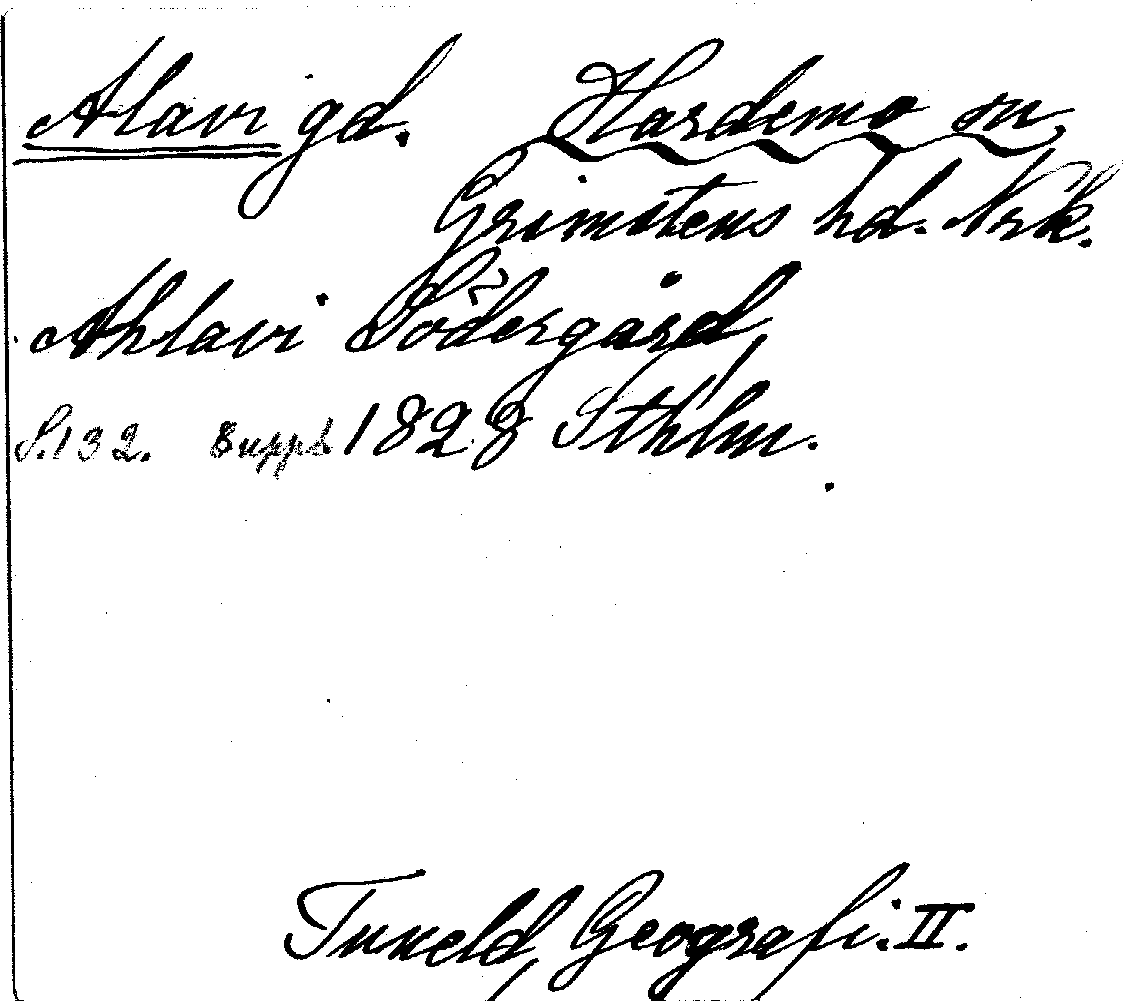 Alavi gd. Hardemo sn,
Grimstens hd. Nrk.
Ahlavi Södergård,
S.132. Suppl. 1828 Sthlm.
Tuneld, Geografi. II.